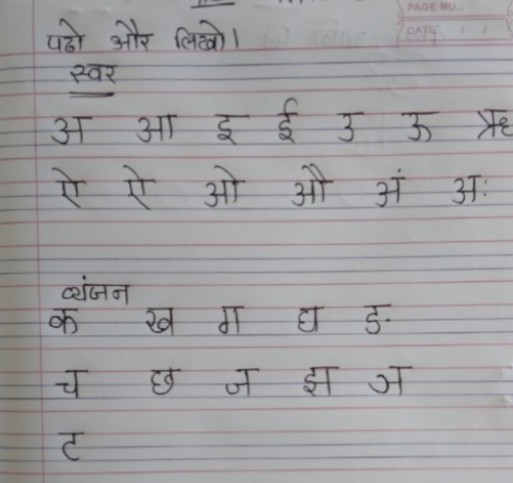 PAGE NO.:
DATE / /
पढो और लिखो।
स्वर
अ आ इ ई उ ऊ ऋ
ऐ ऐ ओ औ अं अः
व्यंजन
क ख ग घ ङ
च छ ज झ ञ
ट